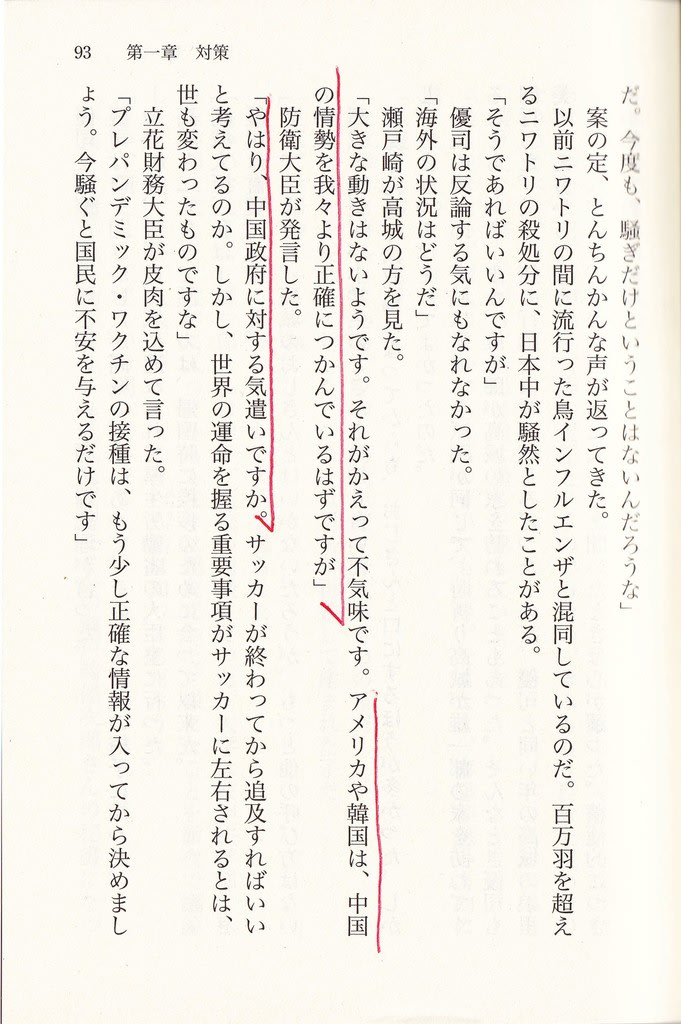 93　第一章　対策
だ。今度も、騒ぎだけということはないんだろうな」
案の定、とんちんかんな声が返ってきた。
以前ニワトリの間に流行った鳥インフルエンザと混同しているのだ。百万羽を超え
るニワトリの殺処分に、日本中が騒然としたことがある。
「そうであればいいんですが」
優司は反論する気にもなれなかった。
「海外の状況はどうだ」
瀬戸崎が高城の方を見た。
「大きな動きはないようです。それがかえって不気味です。アメリカや韓国は、中国
の情勢を我々より正確につかんでいるはずですが」
防衛大臣が発言した。
「やはり、中国政府に対する気遣いですか。サッカーが終わってから追及すればいい
と考えてるのか。しかし、世界の運命を握る重要事項がサッカーに左右されるとは、
世も変わったものですな」
立花財務大臣が皮肉を込めて言った。
「プレパンデミック・ワクチンの接種は、もう少し正確な情報が入ってから決めまし
ょう。今騒ぐと国民に不安を与えるだけです」